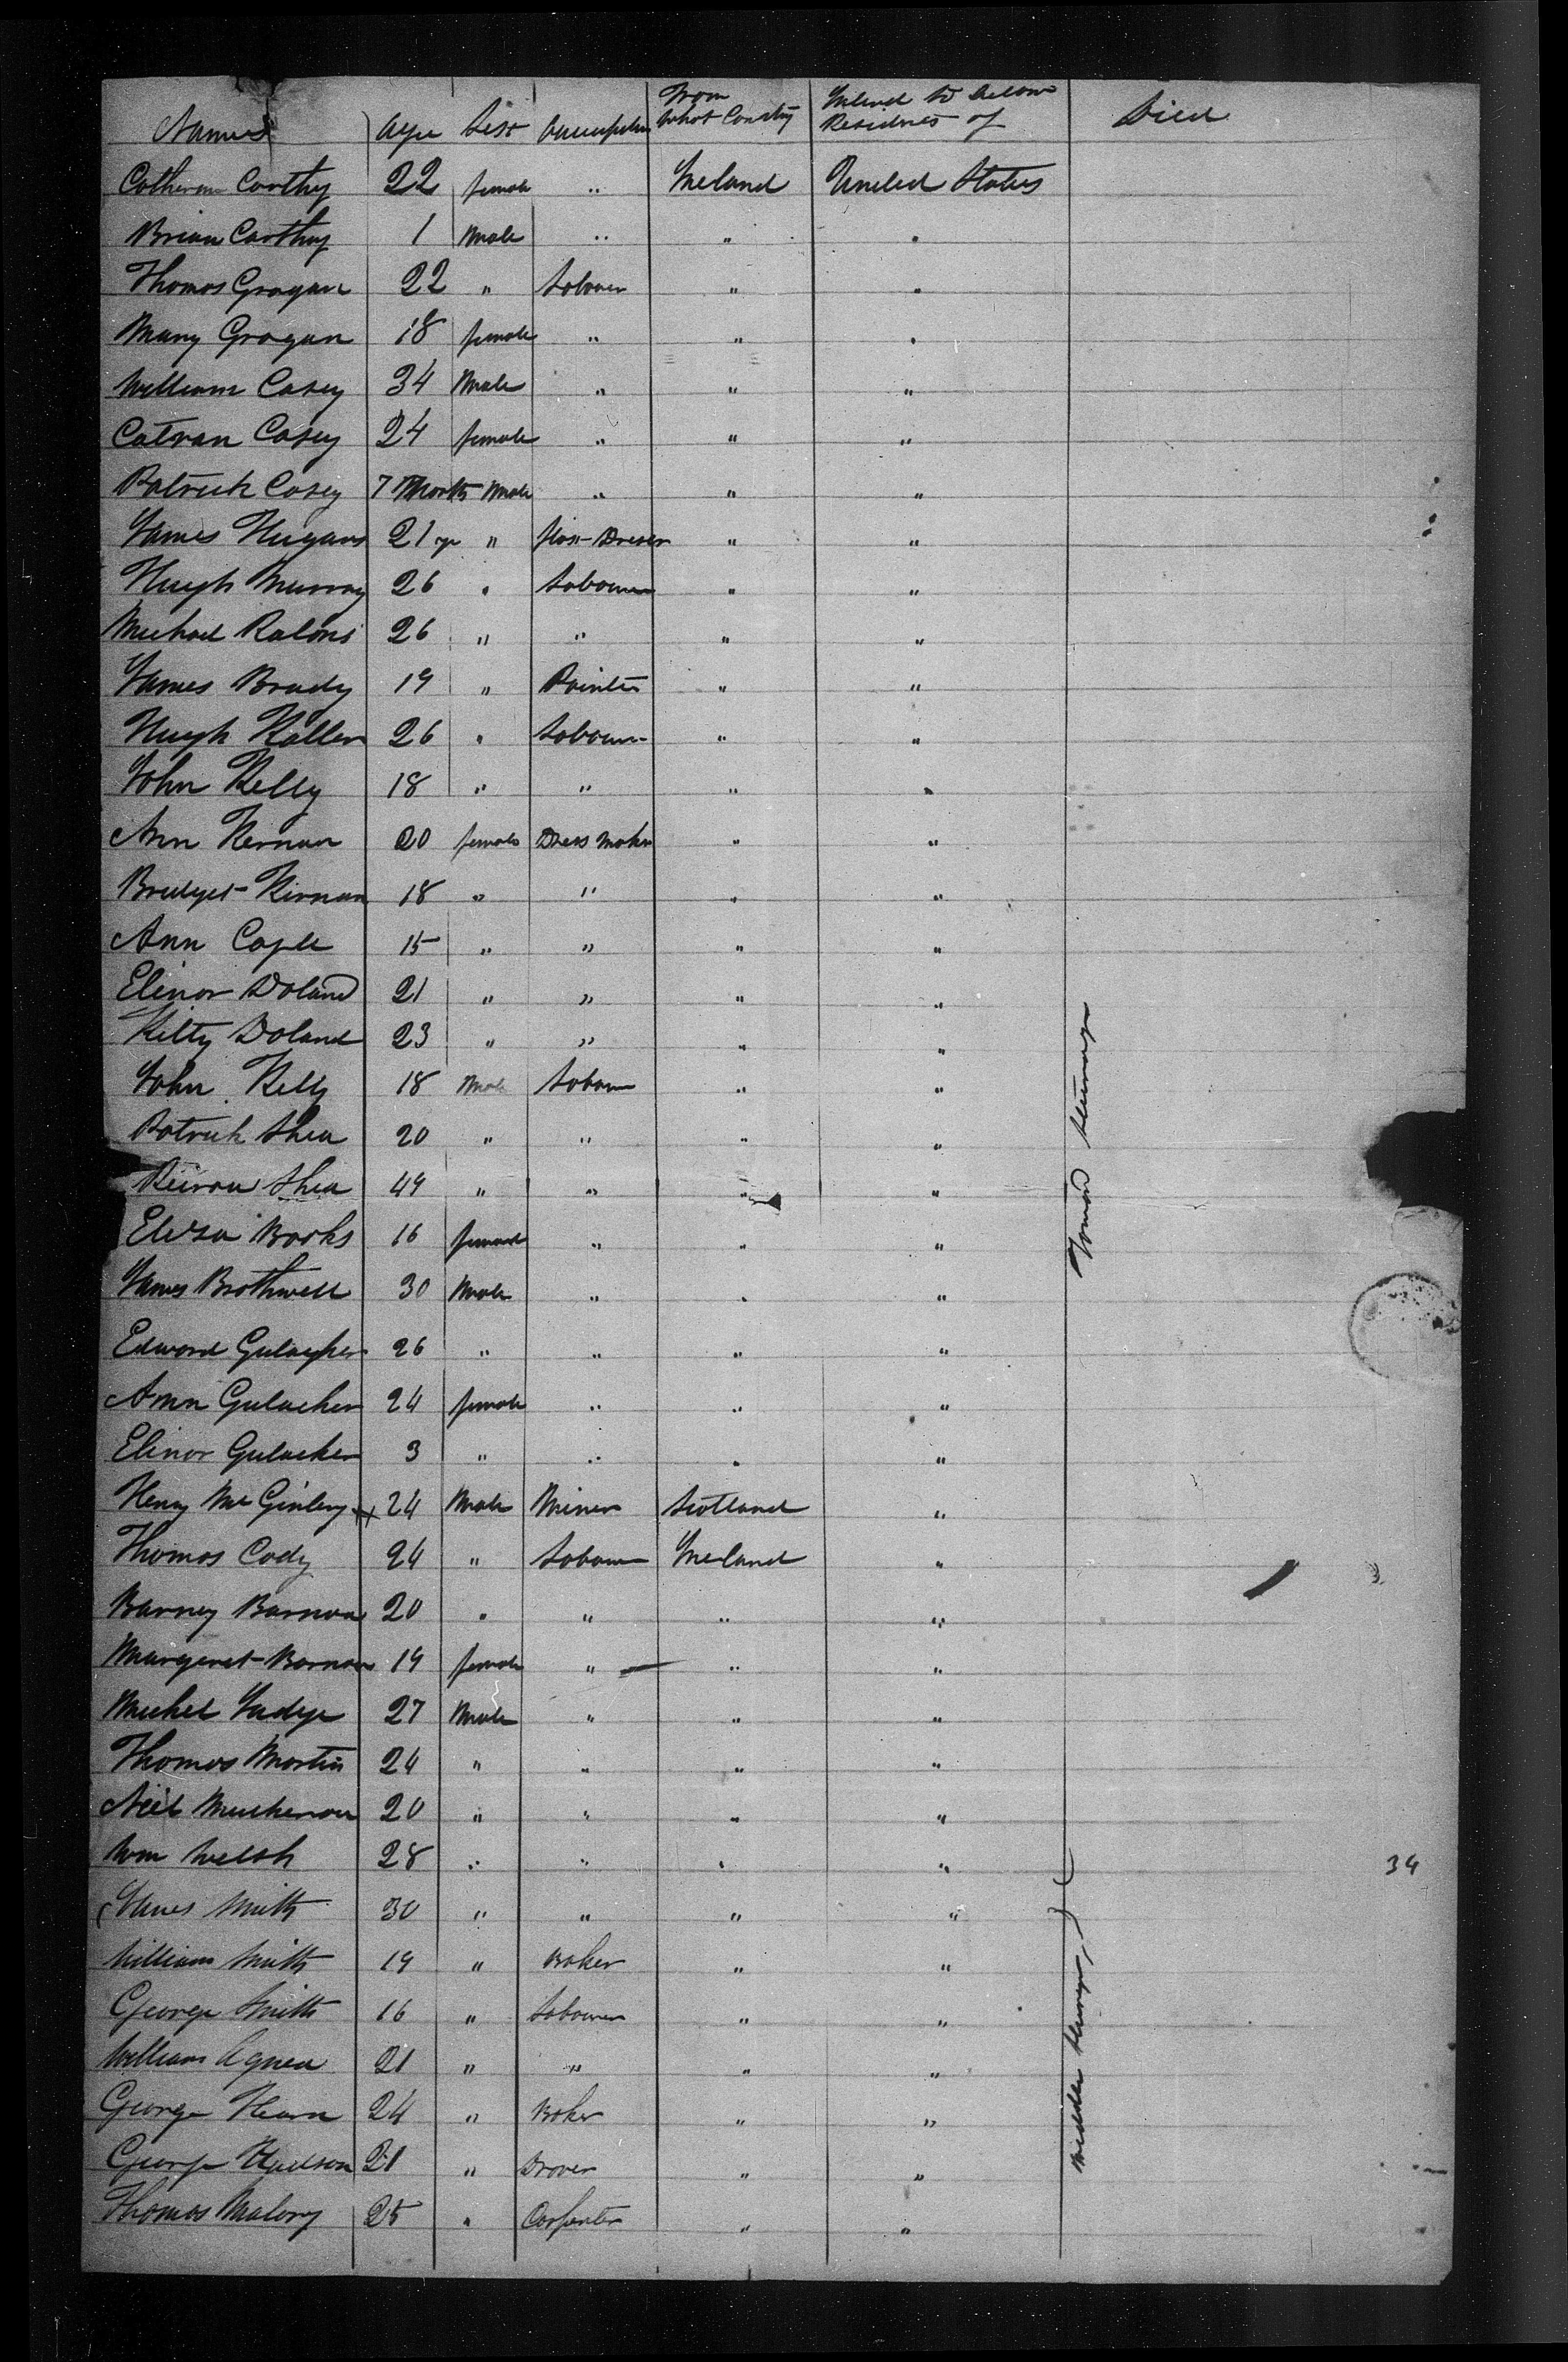 Names Age Sex Occupation From what Country Intend to become Residents of Died
Catheran Carthy 22 female " Ireland United States
Brian Carthy 1 Male " " "
Thomas Grogan 22 " Labourer " "
Mary Grogan 18 female " " "
William Casey 34 Male " " "
Catran Casey 24 female " " "
Patrick Casey 7 Month Male " " "
James Hugans 21 " " "
Hugh Murray 26 " Labourer " "
Michael 26 " " " "
James Brady 19 " Painter " "
Hugh Kallen 26 " Labourer " "
John Kelly 18 " " " "
Ann Kernan 20 female Dress Maker " "
Bridget Kirnan 18 " " " "
Ann Cople 15 " " " "
Elinor Doland 21 " " " "
Kitty Doland 23 " " " "
John Kelly 18 Male Labour " "
Patrick Shea 20 " " " "
Shea 49 " " " "
Eliza Books 16 female " " "
James Brothwell 30 Male " " "
Edward Gulagher 26 " " " "
Ann Gulacher 24 female " " "
Elinor Gulacher 3 " " " "
Henry McGinley 24 Male Miner Scotland "
Thomas Cody 24 " Labour Ireland "
Barney Barnon 20 " " " "
Margeret Barnon 19 female " " "
Michel Judge 27 Male " " "
Thomas Martin 24 " " " "
Neil 20 " " " "
Wm Welsh 28 " " " "
James Smith 30 " " " "
William Smith 19 " Baker " "
George Smith 16 " Labourer " "
William Agnew 21 " " " "
George Hearn 24 " Baker " "
George Hudson 21 " Drover " "
Thomas Malory 25 " Carpenter " "
Steerage
34